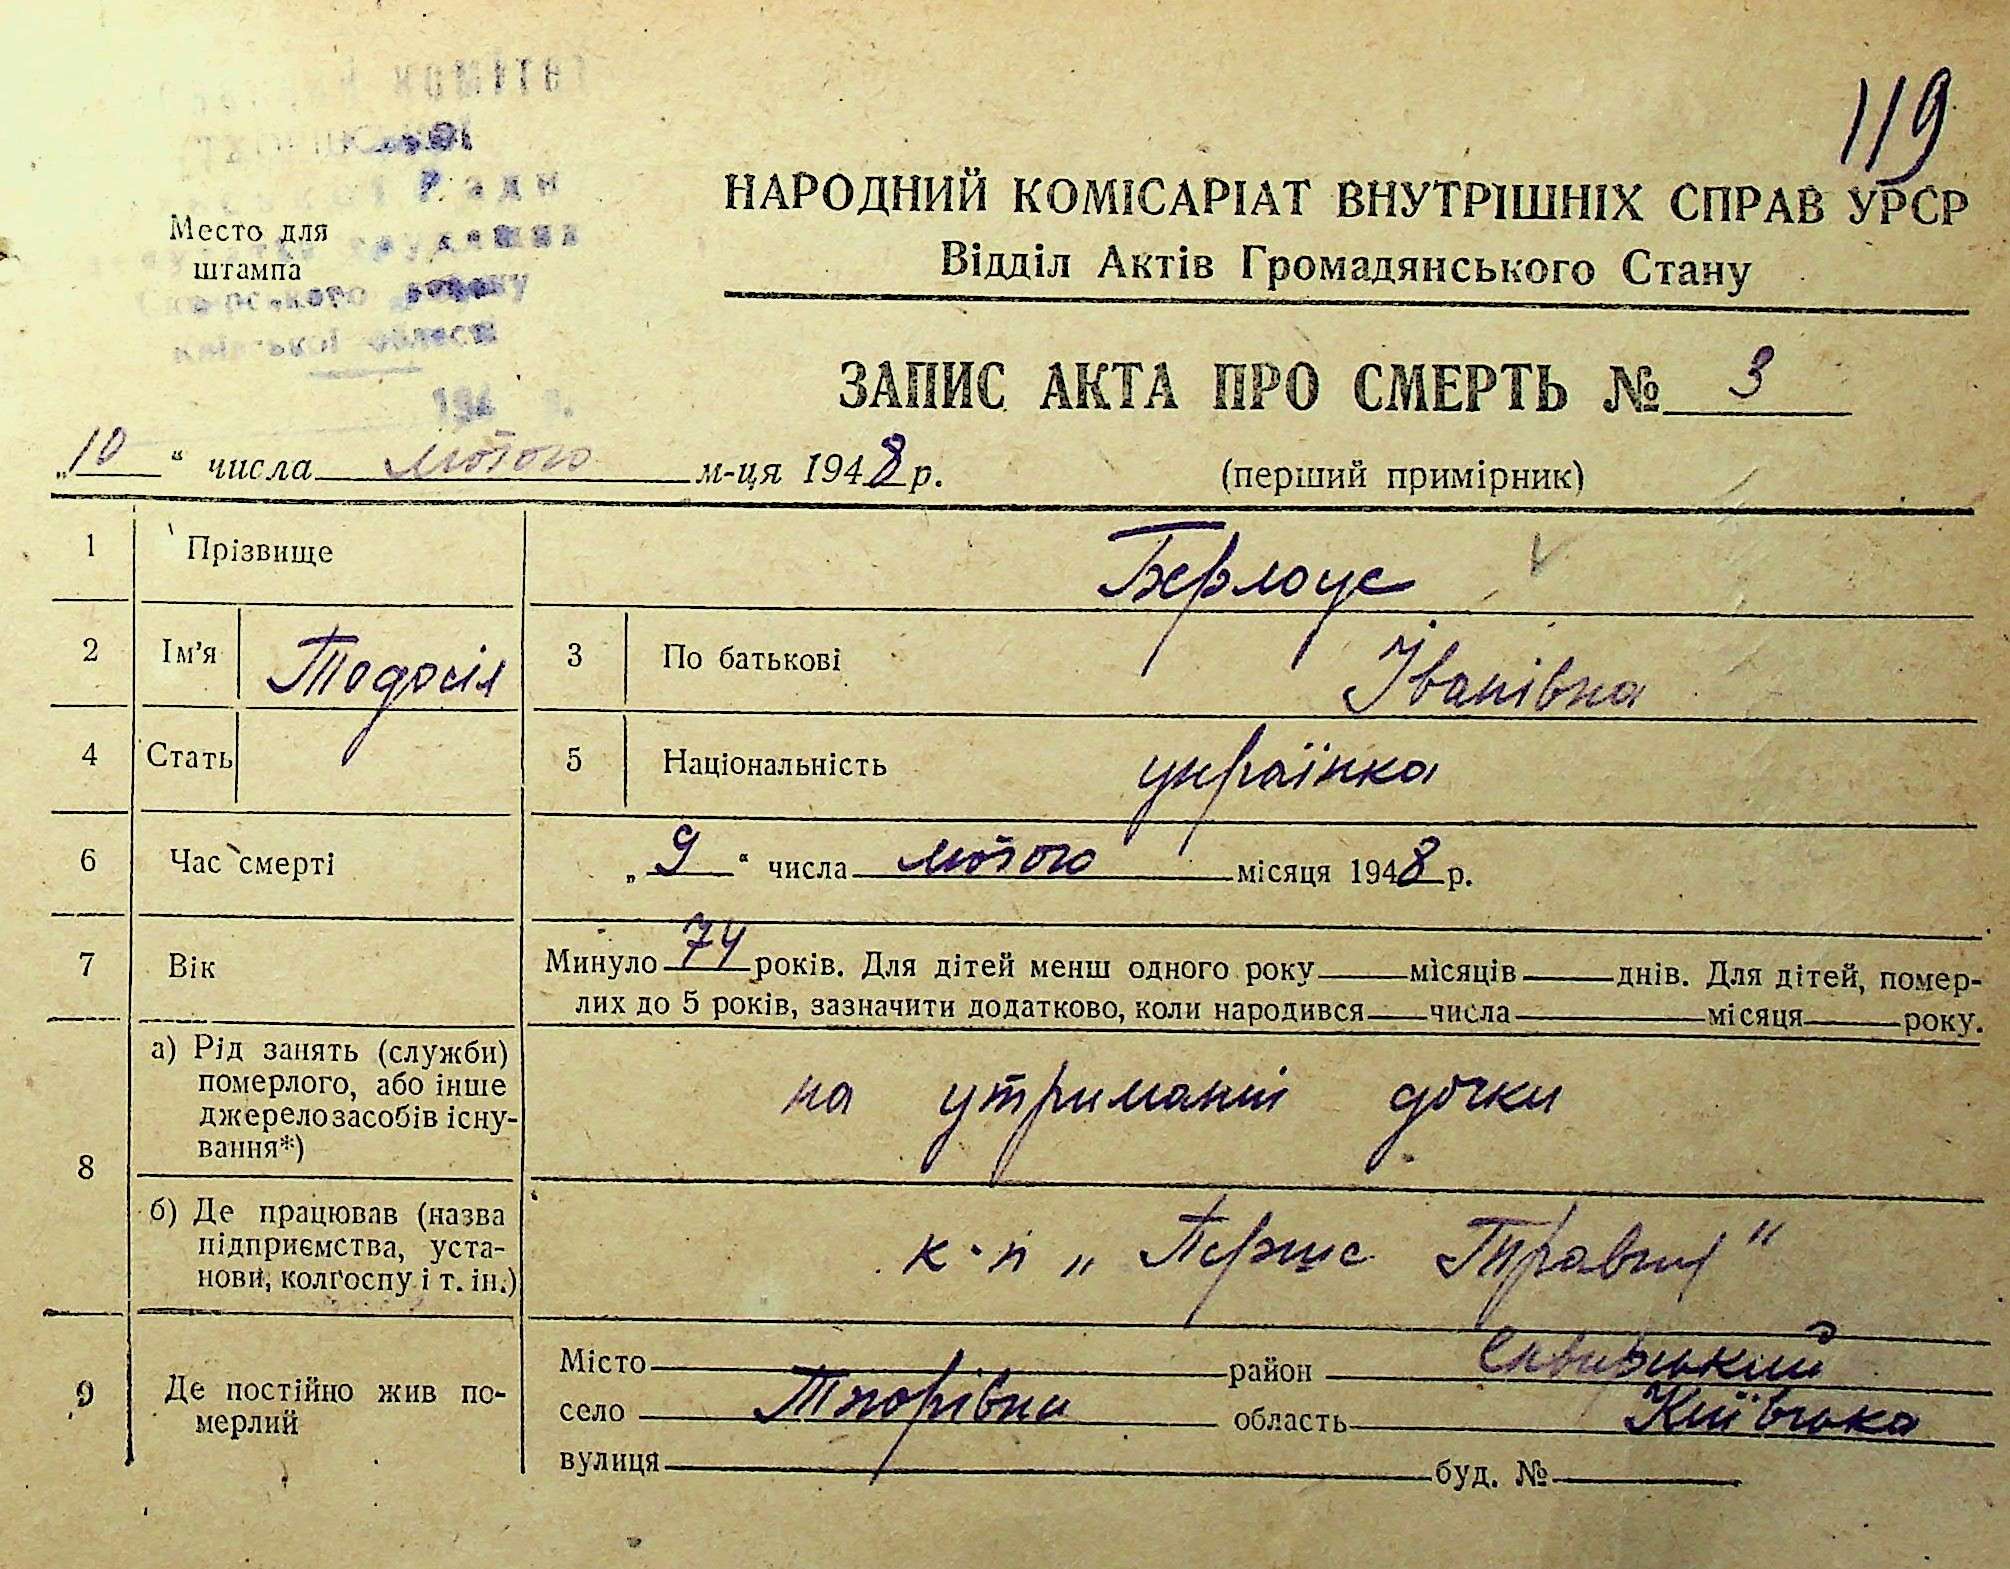 119
комітет
Ради
Место для
штампа
району
області
194 р.
НАРОДНИЙ КОМІСАРІАТ ВНУТРІШНІХ СПРАВ УРСР
Відділ Актів Громадянського Стану
ЗАПИС АКТА ПРО СМЕРТЬ № 3
„10“ числа лютого м-ця 1948 р. (перший примірник)
1 Прізвище Берлоус
2 Ім’я Тодосія 3 По батькові Іванівна
4 Стать 5 Національність українка
6 Час смерті „9“ числа лютого місяця 1948 р.
7 Вік Минуло 74 років. Для дітей менш одного року місяців днів. Для дітей, помер-
лих до 5 років, зазначити додатково, коли народився числа місяця року.
8
а) Рід занять (служби)
померлого, або інше
джерело засобів існу-
вання*)
на утриманні дочки
б) Де працював (назва
підприємства, уста-
нови, колгоспу і т. ін.)
к-п „Перше Травня“
9 Де постійно жив по-
мерлий
Місто район Сквирський
село Тхорівка область Київська
вулиця буд. №